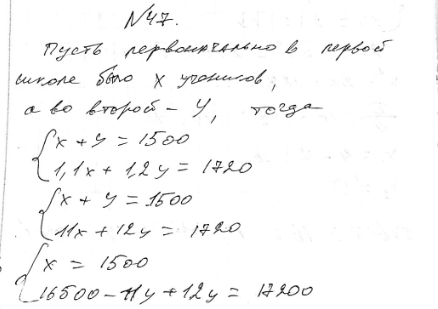 №47.
Пусть первоначально в первой
школе было x учеников,
а во второй – y, тогда
{x + y = 1500
1,1x + 1,2y = 1720
{x + y = 1500
11x + 12y = 1720
{x = 1500
16500 – 11y + 12y = 17200